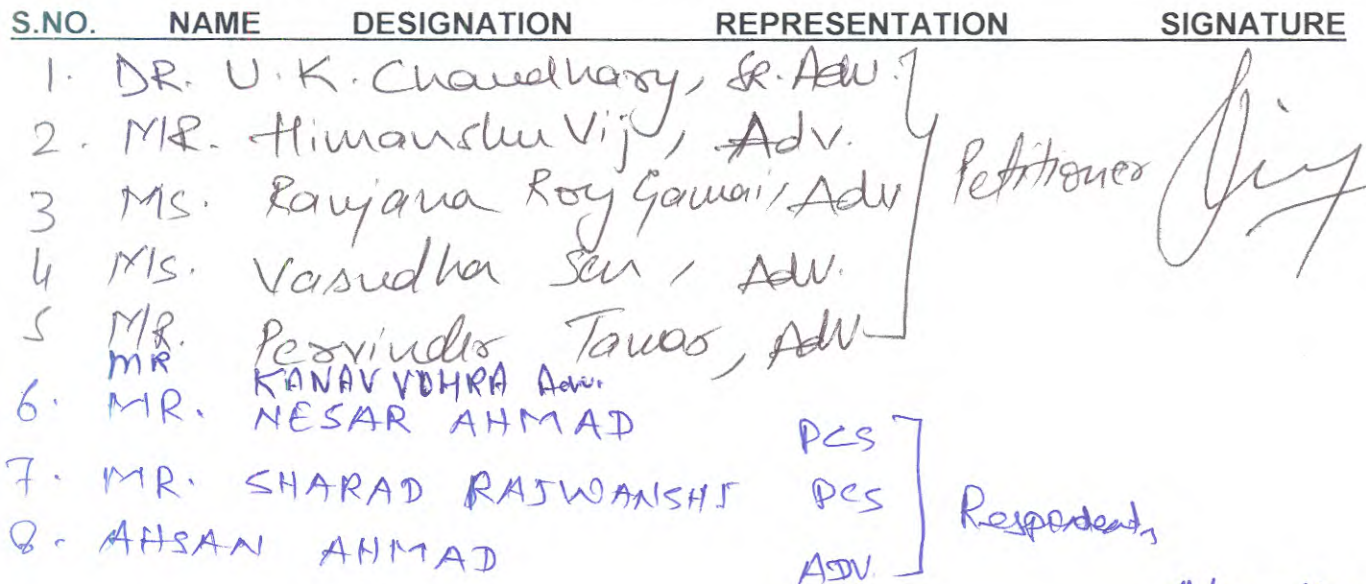 S.NO. NAME DESIGNATION REPRESENTATION SIGNATURE
1. DR. U.K. Chaudhary, SR. Adv.
2. MR. Himanshu Vij, Adv.
3 MS. Ranjana Roy Gawai, Adv
Petitioner
4 MS. Vasudha Sen, Adv.
5 MR. Pervinder Tawar, Adv
MR KANAV VOHRA Adv.
6. MR. NESAR AHMAD PCS
7. MR. SHARAD RAJWANSHI PCS
Respondents
8. AHSAN AHMAD ADV.